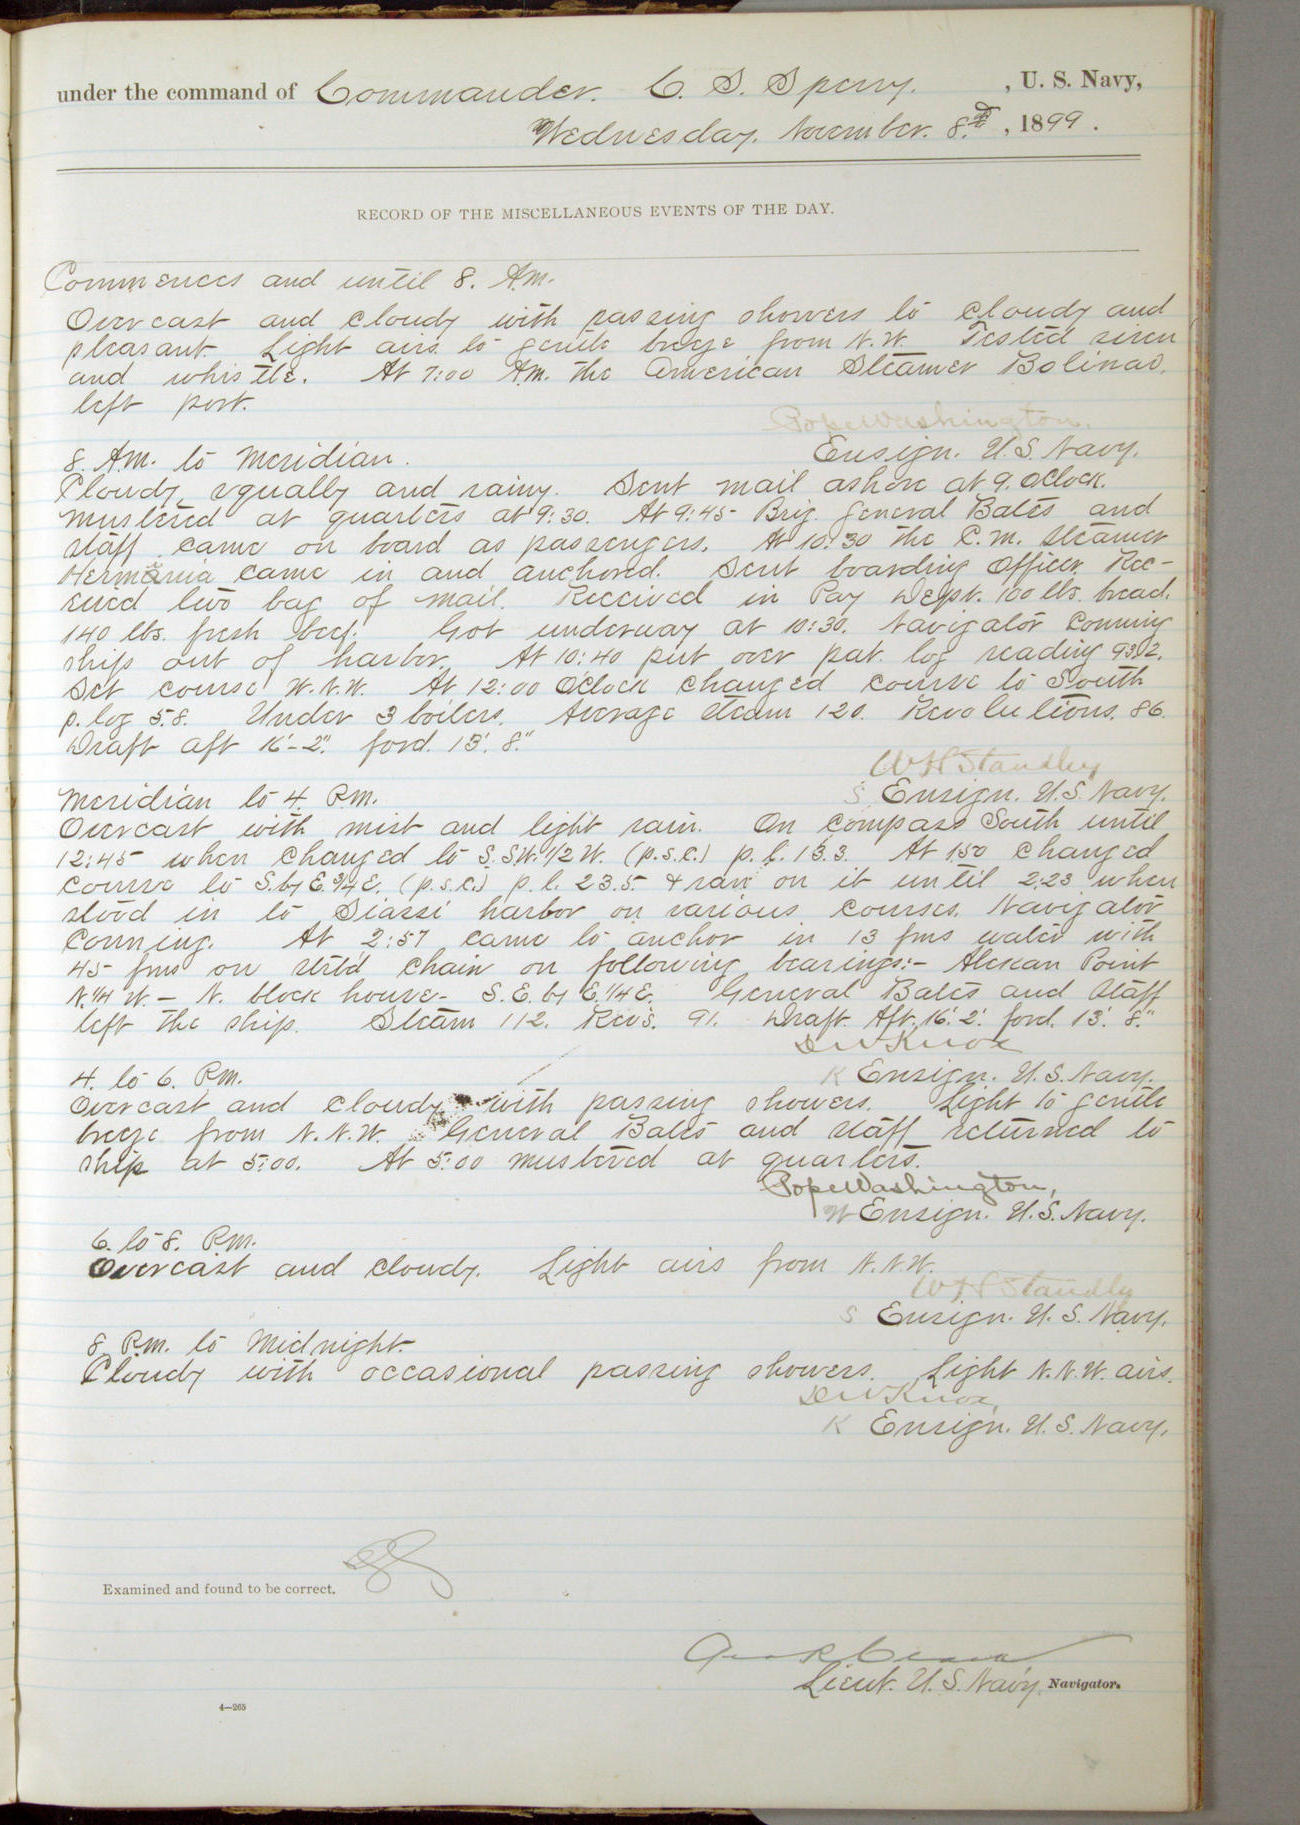 under the command of Commander. C. S. Sperry. , U. S. Navy,
Wednesday. November. 8th , 1899 .
RECORD OF THE MISCELLANEOUS EVENTS OF THE DAY.
Commences and until 8. A.m.
Overcast and cloudy with passing showers to cloudy and
pleasant. Light airs to gentle breeze from N.W. Tested siren
and whistle. At 7:00 A.m. the American Steamer Bolinao.
left port.
Pope Washington.
Ensign. U.S. Navy.
8. A.m. to Meridian.
Cloudy, squally and rainy. Sent mail ashore at 9. oclock.
Mustered at quarters at 9:30. At 9:45 Brig. General Bates and
staff came on board as passengers. At 10:30 the C.m. Steamer
Hermania came in and anchored. Sent boarding Officer. Rec-
eived two bag of mail. Received in Pay Dept. 100 lbs. bread.
140 lbs. fresh beef. Got underway at 10:30. Navigator conning
ship out of harbor. At 10:40 put over pat. log reading 93.2.
Set course W.N.W. At 12:00 Oclock changed course to South
p. log 5.8. Under 3 boilers. Average steam 120. Revolutions. 86.
Draft aft 16'-2". ford. 13'. 8."
W H Standley
S Ensign. U.S. Navy.
Meridian to 4. P.m.
Overcast with mist and light rain. On compass South until
12:45 when changed to S.S.W. 1/2 W. (p.s.c.) p. l. 13.3. At 1:50 changed
course to S. by E. 3/4 E. (p.s.c.) p. l. 23.5. & ran on it until 2:23 when
stood in to Siassi harbor on various courses. Navigator
conning. At 2:57 came to anchor in 13 fms water with
45 fms on stb'd chain on following bearings:- Aleean Point
N. 1/4 W. - N. block house - S.E. by E. 1/4 E. General Bates and Staff
left the ship. Steam 112. Revs. 91. Draft. Aft. 16'. 2'. ford. 13'. 8."
D W Knox
K Ensign. U.S. Navy.
4. to 6. P.m.
Overcast and cloudy with passing showers. Light to gentle
breeze from N.N.W. General Bates and staff returned to
ship at 5:00. At 5:00 mustered at quarters.
Pope Washington,
W Ensign. U.S. Navy.
6. to 8. P.m.
Overcast and cloudy. Light airs from N.N.W.
W H Standley
S Ensign. U.S. Navy.
8. P.m. to Midnight.
Cloudy with occasional passing showers. Light N.N.W. airs.
D W Knox
K Ensign. U.S. Navy.
Examined and found to be correct.
Lieut. U.S. Navy. Navigator.
4—265